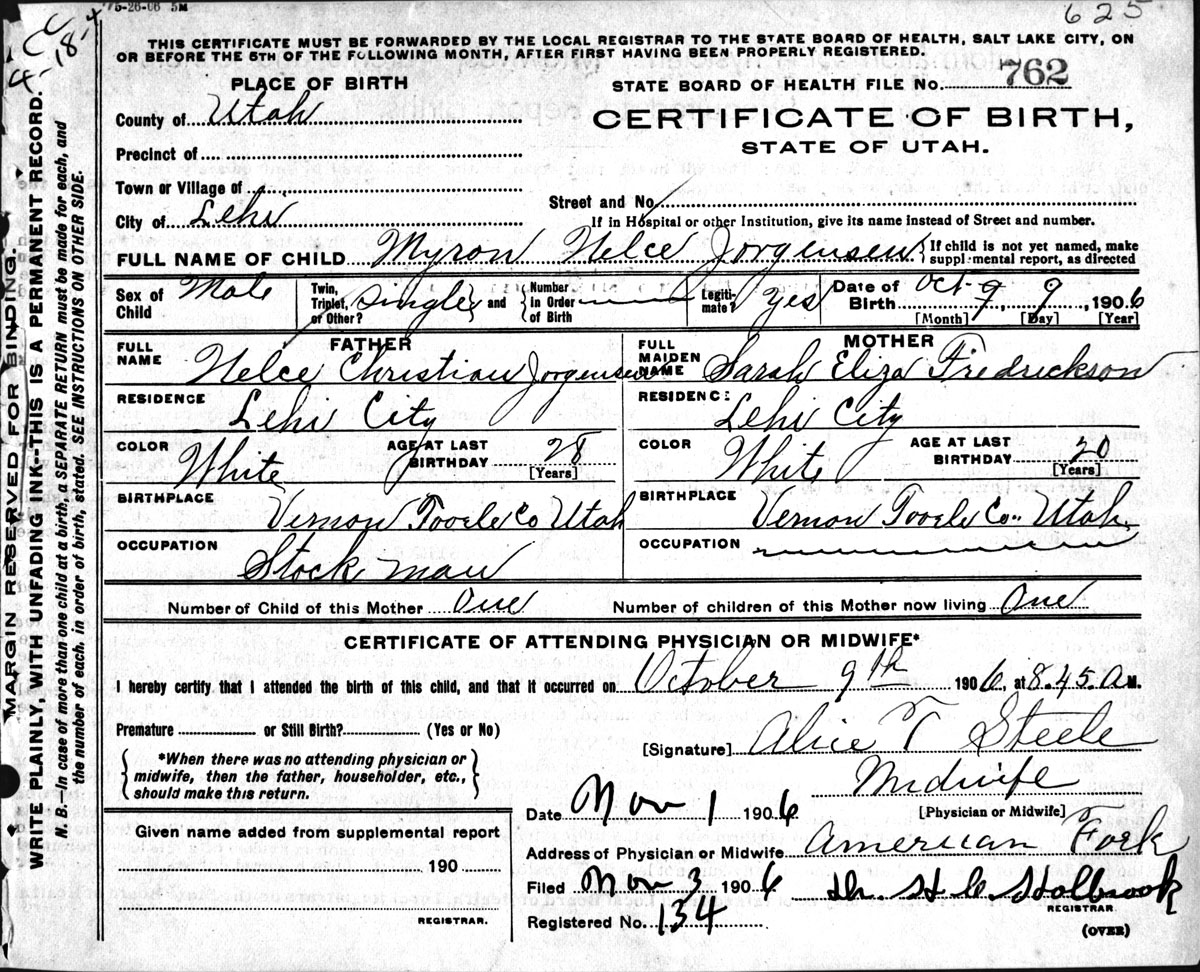 75-26-06 5M
625
THIS CERTIFICATE MUST BE FORWARDED BY THE LOCAL REGISTRAR TO THE STATE BOARD OF HEALTH, SALT LAKE CITY, ON
OR BEFORE THE 5TH OF THE FOLLOWING MONTH, AFTER FIRST HAVING BEEN PROPERLY REGISTERED.
PLACE OF BIRTH
STATE BOARD OF HEALTH FILE No. 762
County of Utah
CERTIFICATE OF BIRTH,
Precinct of
STATE OF UTAH.
Town or Village of
Street and No.
City of Lehi
If in Hospital or other Institution, give its name instead of Street and number.
FULL NAME OF CHILD Myron Nelce Jorgensen { If child is not yet named, make
supplemental report, as directed
Sex of Child Male
Twin, Triplet, or Other? Single } and { Number in Order of Birth
Legitimate? Yes
Date of Birth Oct 9, 9, 1906
[Month] [Day] [Year]
FATHER
FULL NAME Nelce Christian Jorgensen
MOTHER
FULL MAIDEN NAME Sarah Eliza Fredrickson
RESIDENCE Lehi City
RESIDENCE Lehi City
COLOR White AGE AT LAST BIRTHDAY 28 [Years]
COLOR White AGE AT LAST BIRTHDAY 20 [Years]
BIRTHPLACE Vernon Tooele Co Utah
BIRTHPLACE Vernon Tooele Co. Utah
OCCUPATION Stock man
OCCUPATION
Number of Child of this Mother One Number of children of this Mother now living One
CERTIFICATE OF ATTENDING PHYSICIAN OR MIDWIFE*
I hereby certify that I attended the birth of this child, and that it occurred on October 9th 1906, at 8.45.A M.
Premature or Still Birth? (Yes or No)
[Signature] Alice T Steele
*When there was no attending physician or
midwife, then the father, householder, etc.,
should make this return.
Midwife
[Physician or Midwife]
Date Nov 1 1906
Given name added from supplemental report
Address of Physician or Midwife American Fork
190
Filed Nov 3 1906 Dr. H C Holbrook
REGISTRAR.
REGISTRAR
Registered No. 134
(OVER)
MARGIN RESERVED FOR BINDING.
WRITE PLAINLY, WITH UNFADING INK--THIS IS A PERMANENT RECORD.
N. B.—In case of more than one child at a birth, a SEPARATE RETURN must be made for each, and
the number of each, in order of birth, stated. SEE INSTRUCTIONS ON OTHER SIDE.